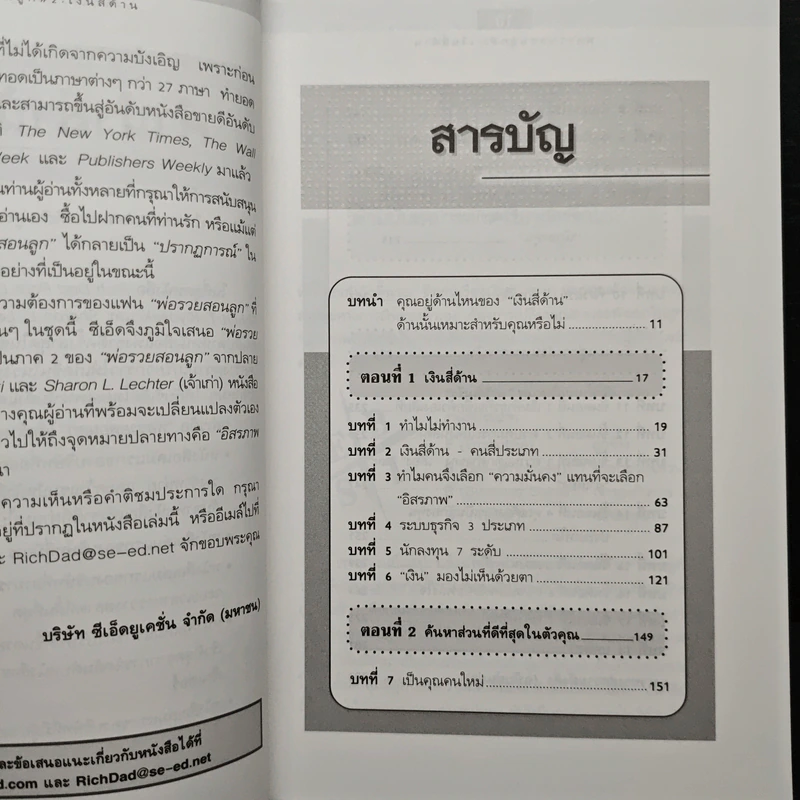 ที่ไม่ได้เกิดจากความบังเอิญ เพราะก่อน
ทอดเป็นภาษาต่างๆ กว่า 27 ภาษา ทำยอด
และสามารถขึ้นสู่อันดับหนังสือขายดีอันดับ
The New York Times, The Wall
Week และ Publishers Weekly มาแล้ว
นท่านผู้อ่านทั้งหลายที่กรุณาให้การสนับสนุน
อ่านเอง ซื้อไปฝากคนที่ท่านรัก หรือแม้แต่
สอนลูก" ได้กลายเป็น "ปรากฏการณ์" ใน
อย่างที่เป็นอยู่ในขณะนี้
วามต้องการของแฟน "พ่อรวยสอนลูก" ที่
นๆ ในชุดนี้ ซีเอ็ดจึงภูมิใจเสนอ "พ่อรวย
ป็นภาค 2 ของ "พ่อรวยสอนลูก" จากปลาย
i และ Sharon L. Lechter (เจ้าเก่า) หนังสือ
างคุณผู้อ่านที่พร้อมจะเปลี่ยนแปลงตัวเอง
วไปให้ถึงจุดหมายปลายทางคือ "อิสรภาพ
นา
ความเห็นหรือคำติชมประการใด กรุณา
อยู่ที่ปรากฏในหนังสือเล่มนี้ หรืออีเมล์ไปที่
ะ RichDad@se-ed.net จักขอบพระคุณ
บริษัท ซีเอ็ดยูเคชั่น จำกัด (มหาชน)
และข้อเสนอแนะเกี่ยวกับหนังสือได้ที่
d.com และ RichDad@se-ed.net
สารบัญ
บทนำ คุณอยู่ด้านไหนของ "เงินสี่ด้าน"
ด้านนั้นเหมาะสำหรับคุณหรือไม่ 11
ตอนที่ 1 เงินสี่ด้าน 17
บทที่ 1 ทำไมไม่ทำงาน 19
บทที่ 2 เงินสี่ด้าน - คนสี่ประเภท 31
บทที่ 3 ทำไมคนจึงเลือก "ความมั่นคง" แทนที่จะเลือก
"อิสรภาพ" 63
บทที่ 4 ระบบธุรกิจ 3 ประเภท 87
บทที่ 5 นักลงทุน 7 ระดับ 101
บทที่ 6 "เงิน" มองไม่เห็นด้วยตา 121
ตอนที่ 2 ค้นหาส่วนที่ดีที่สุดในตัวคุณ 149
บทที่ 7 เป็นคุณคนใหม่ 151